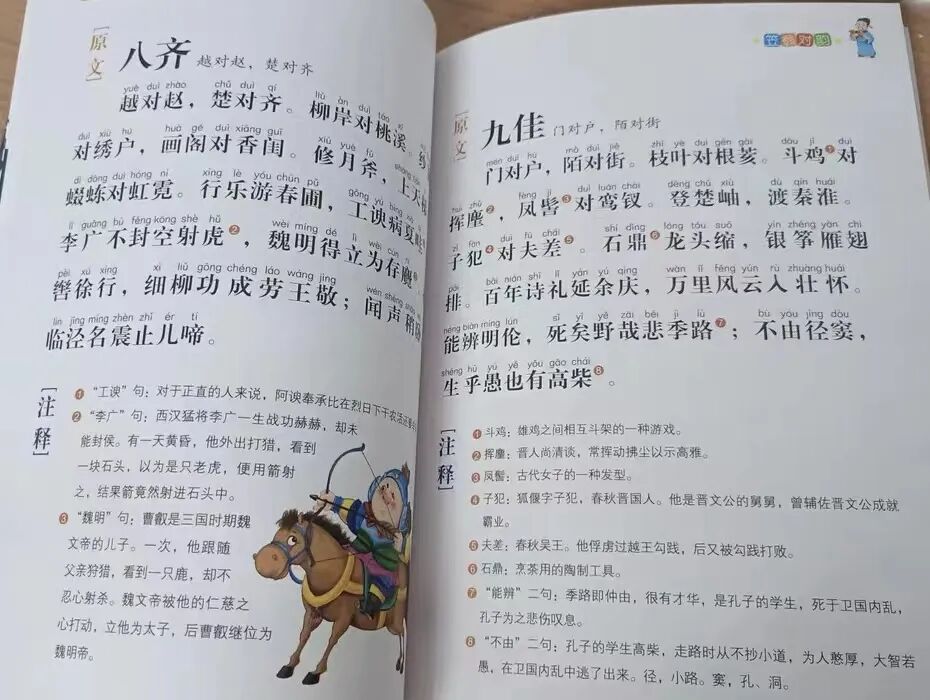 [原文]
八齐 越对赵，楚对齐
yuè duì zhào chǔ duì qí liǔ àn duì táo xī
越对赵，楚对齐。柳岸对桃溪。
duì xiù hù huà gé duì xiāng guī xiū yuè fǔ
对绣户，画阁对香闺。修月斧，上天
dì dōng duì hóng ní xíng lè yóu chūn pǔ gōng yú bìng xià
蝃蝀对虹霓。行乐游春圃，工谀病夏
lǐ guǎng bù fēng kōng shè hǔ wèi míng dé lì wèi cún
李广不封空射虎❷，魏明得立为存麑
pèi xú xíng xì liǔ gōng chéng láo wáng jìng wén shēng
辔徐行，细柳功成劳王敬；闻声稍
lín jīng míng zhèn zhǐ ér tí
临泾名震止儿啼。
[注释]
❶ “工谀”句：对于正直的人来说，阿谀奉承比在烈日下干农活还要
❷ “李广”句：西汉猛将李广一生战功赫赫，却未
能封侯。有一天黄昏，他外出打猎，看到
一块石头，以为是只老虎，便用箭射
之，结果箭竟然射进石头中。
❸ “魏明”句：曹叡是三国时期魏
文帝的儿子。一次，他跟随
父亲狩猎，看到一只鹿，却不
忍心射杀。魏文帝被他的仁慈之
心打动，立他为太子，后曹叡继位为
魏明帝。
笠翁对韵
[原文]
九佳 门对户，陌对街
mén duì hù mò duì jiē zhī yè duì gēn gāi dòu jī duì
门对户，陌对街。枝叶对根荄。斗鸡❶对
huī zhǔ fèng jì duì luán chāi dēng chǔ xiù dù qín huái
挥麈❷，凤髻❸对鸾钗。登楚岫，渡秦淮。
zǐ fàn duì fū chāi shí dǐng lóng tóu suō yín zhēng yàn chì
子犯❹对夫差❺。石鼎❻龙头缩，银筝雁翅
pái bǎi nián shī lǐ yán yú qìng wàn lǐ fēng yún rù zhuàng huái
排。百年诗礼延余庆，万里风云入壮怀。
néng biàn míng lún sǐ yǐ yě zāi bēi jì lù bù yóu jìng dòu
能辨明伦，死矣野哉悲季路❼；不由径窦，
shēng hū yú yě yǒu gāo chái
生乎愚也有高柴❽。
[注释]
❶ 斗鸡：雄鸡之间相互斗架的一种游戏。
❷ 挥麈：晋人尚清谈，常挥动拂尘以示高雅。
❸ 凤髻：古代女子的一种发型。
❹ 子犯：狐偃字子犯，春秋晋国人。他是晋文公的舅舅，曾辅佐晋文公成就
霸业。
❺ 夫差：春秋吴王。他俘虏过越王勾践，后又被勾践打败。
❻ 石鼎：烹茶用的陶制工具。
❼ “能辨”二句：季路即仲由，很有才华，是孔子的学生，死于卫国内乱，
孔子为之悲伤叹息。
❽ “不由”二句：孔子的学生高柴，走路时从不抄小道，为人憨厚，大智若
愚，在卫国内乱中逃了出来。径，小路。窦，孔、洞。